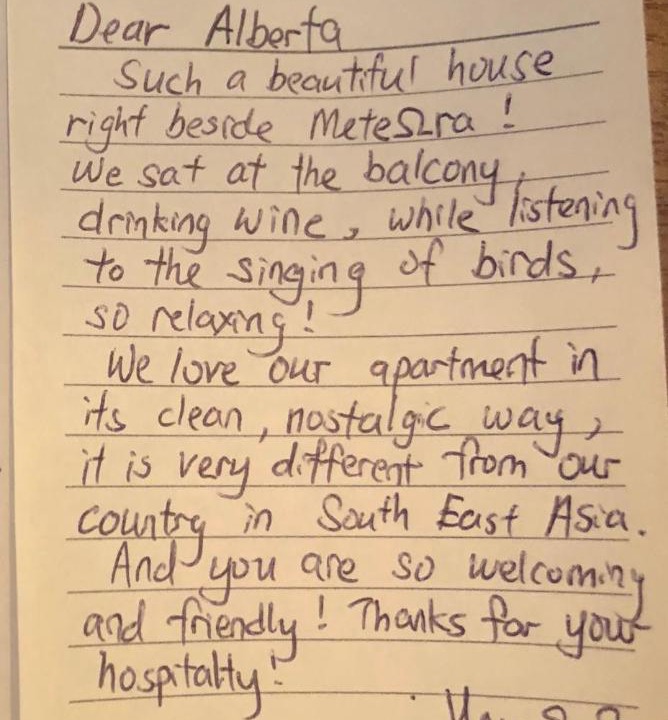 Dear Alberta
Such a beautiful house
right beside MeteΩra !
We sat at the balcony,
drinking wine, while listening
to the singing of birds,
so relaxing!
We love our apartment in
its clean, nostalgic way,
it is very different from our
country in South East Asia.
And you are so welcoming
and friendly! Thanks for your
hospitalty!